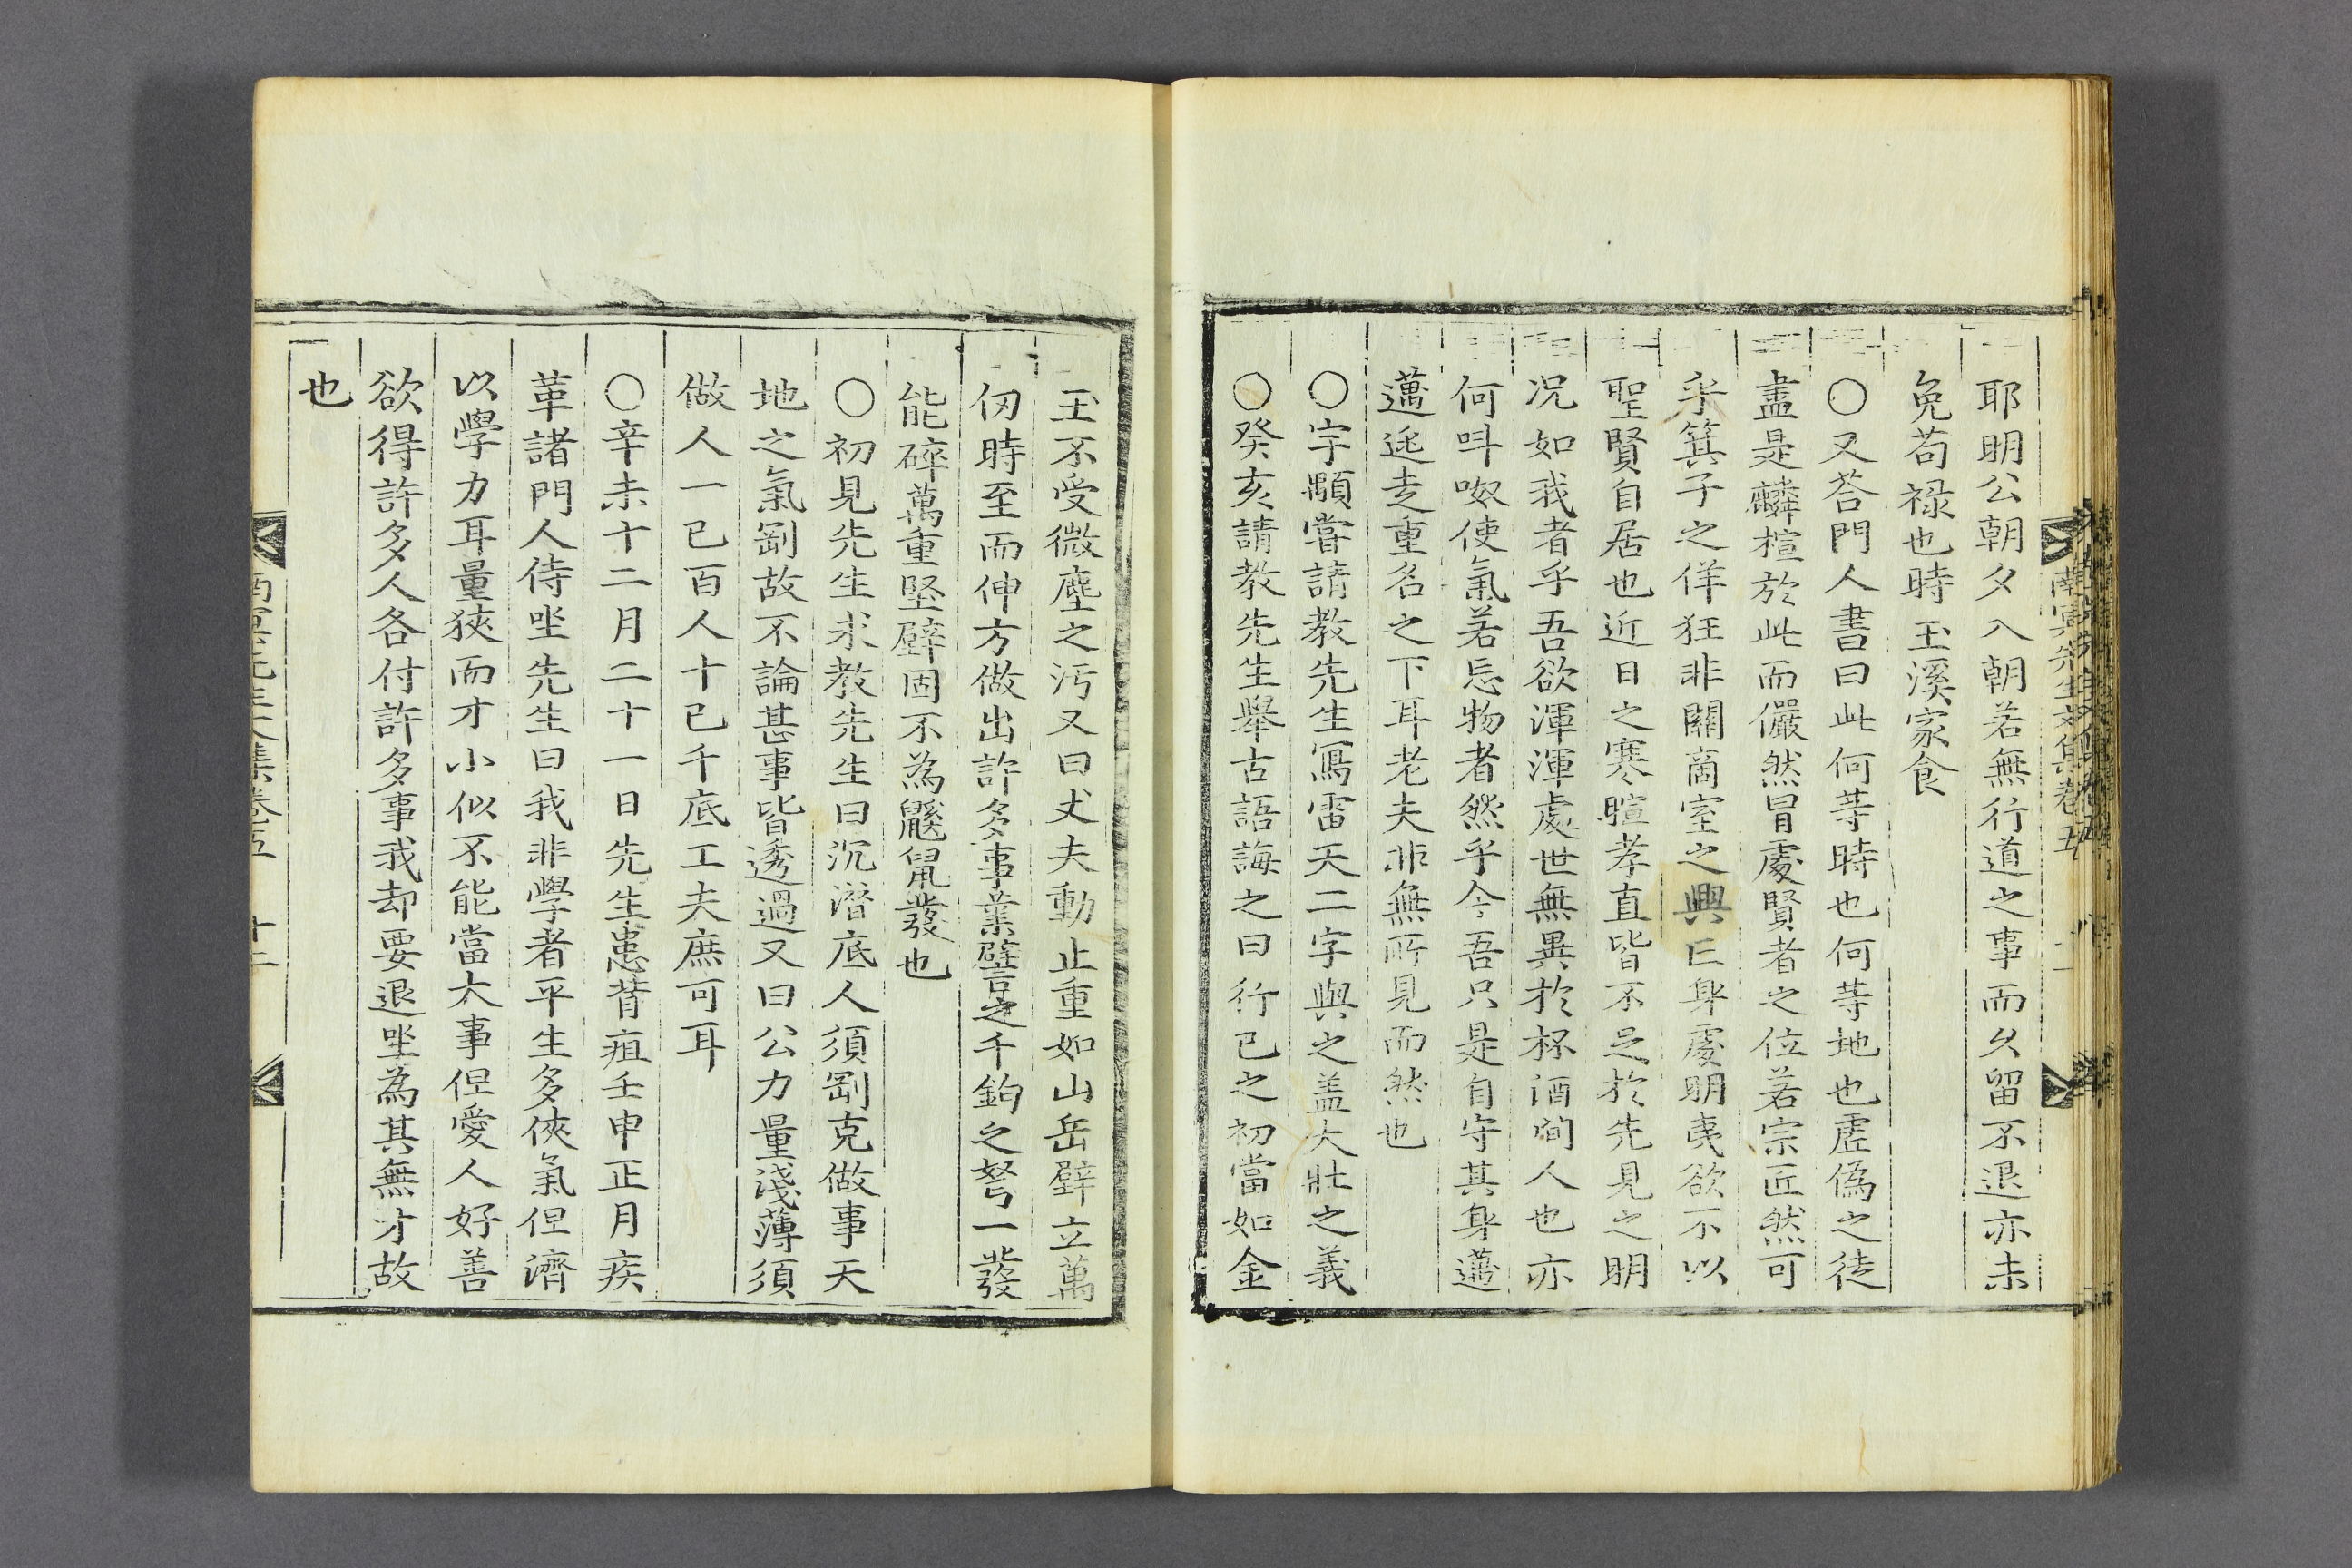 耶明公朝夕入朝若無行道之事而久留不退亦未
免苟祿也時玉溪家食
○又答門人書曰此何等時也何等地也虛偽之徒
盡是麟楦於此而儼然冒處賢者之位若宗匠然可
乎箕子之佯狂非關啇室之興亡身處明夷欲不以
聖賢自居也近日之寒暄孝直皆不足於先見之明
况如我者乎吾欲渾渾處世無異於杯酒間人也亦
何呌呶使氣若忘物者然乎今吾只是自守其身邁
邁逃走重名之下耳老夫非無所見而然也
○宇顒嘗請教先生寫雷天二字與之盖大壯之義
○癸亥請教先生舉古語誨之曰行已之初當如金
玉不受微塵之汚又曰丈夫動止重如山岳壁立萬
仞時至而伸方做出許多事業譬之千鈞之弩一發
能碎萬重堅壁固不為鼷鼠發也
○初見先生求教先生曰沉潛底人須剛克做事天
地之氣剛故不論甚事皆透過又曰公力量淺薄須
做人一已百人十已千底工夫庶可耳
○辛未十二月二十一日先生患背疽壬申正月疾
革諸門人侍坐先生曰我非學者平生多俠氣但濟
以學力耳量狹而才小似不能當大事但愛人好善
欲得許多人各付許多事我却要退坐為其無才故
也
南冥先生文集卷五 十二